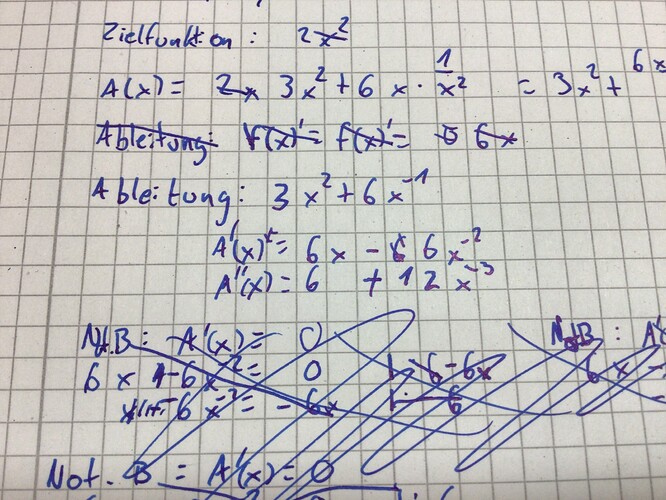 Zielfunktion: 2x²
A(x) = 2x 3x² + 6x · 1/x² = 3x² + 6x
Ableitung: f(x)' = f(x)' = 6x
Ableitung: 3x² + 6x⁻¹
A'(x) = 6x - 6 6x⁻²
A''(x) = 6 + 12x⁻³
Not.B: A'(x) = 0
6x - 6x⁻² = 0 | 6 - 6x
-6x⁻² = -6x |: 6
Not.B: A'(
6x -
Not. B = A'(x) = 0